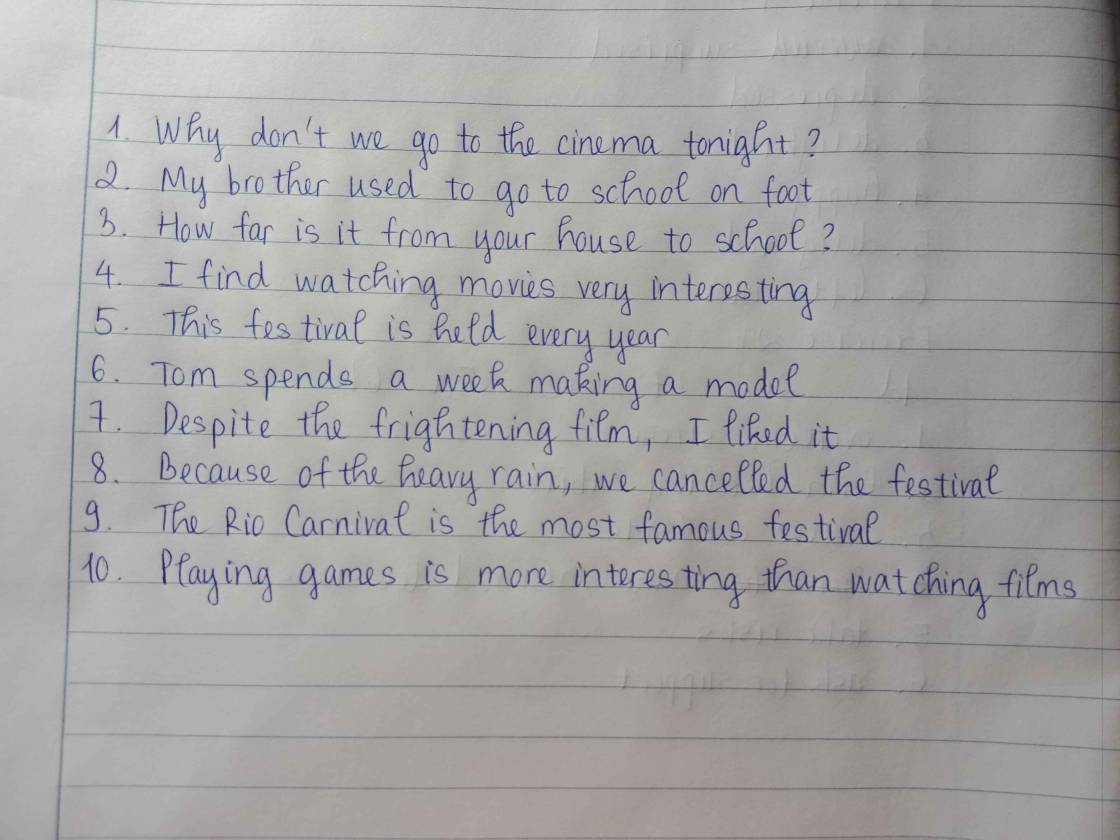 1. Why don't we go to the cinema tonight?
2. My brother used to go to school on foot
3. How far is it from your house to school?
4. I find watching movies very interesting
5. This festival is held every year
6. Tom spends a week making a model
7. Despite the frightening film, I liked it
8. Because of the heavy rain, we cancelled the festival
9. The Rio Carnival is the most famous festival
10. Playing games is more interesting than watching films